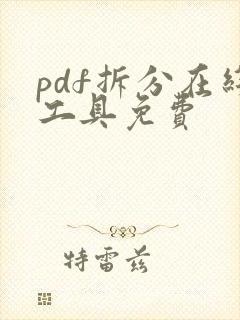 pdf拆分在线
工具免费
特雷兹